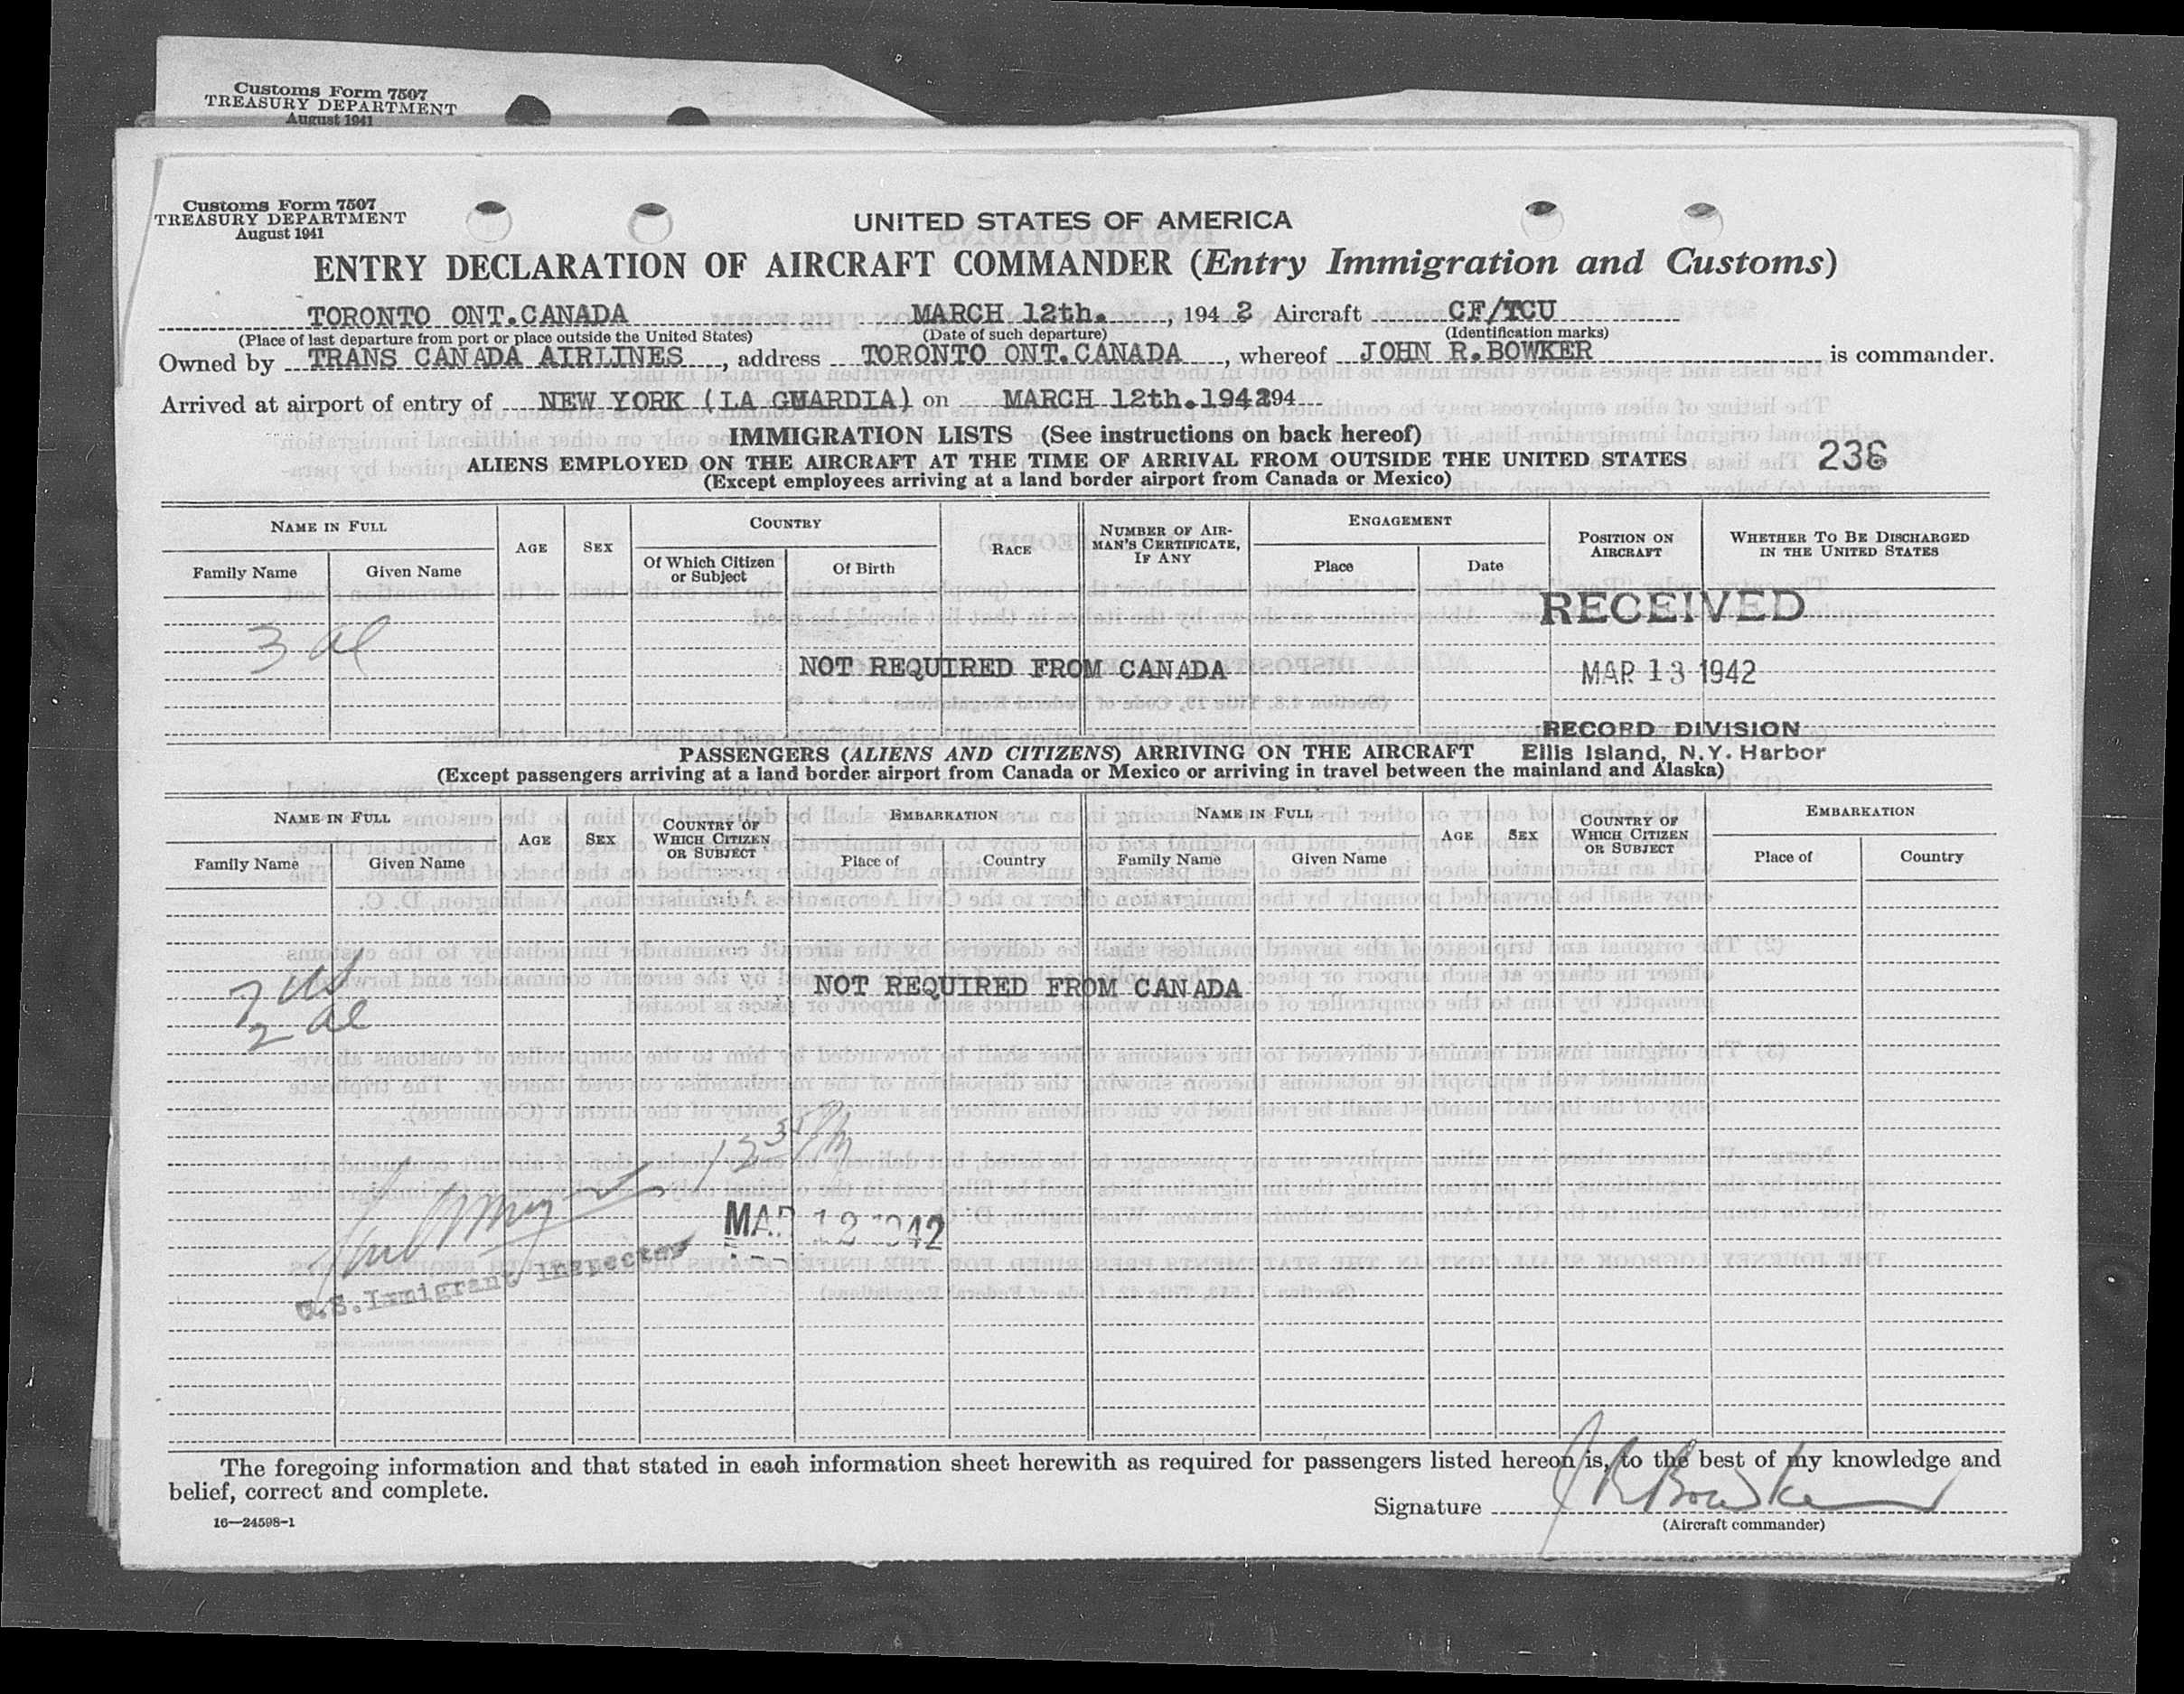 Customs Form 7507
TREASURY DEPARTMENT
August 1941
Customs Form 7507
TREASURY DEPARTMENT
August 1941
UNITED STATES OF AMERICA
ENTRY DECLARATION OF AIRCRAFT COMMANDER (Entry Immigration and Customs)
TORONTO ONT.CANADA MARCH 12th. , 194 2 Aircraft CF/TCU
(Place of last departure from port or place outside the United States) (Date of such departure) (Identification marks)
Owned by TRANS CANADA AIRLINES , address TORONTO ONT.CANADA , whereof JOHN R.BOWKER is commander.
Arrived at airport of entry of NEW YORK (LA GUARDIA) on MARCH 12th.194294
IMMIGRATION LISTS (See instructions on back hereof)
ALIENS EMPLOYED ON THE AIRCRAFT AT THE TIME OF ARRIVAL FROM OUTSIDE THE UNITED STATES 236
(Except employees arriving at a land border airport from Canada or Mexico)
NAME IN FULL AGE SEX COUNTRY RACE NUMBER OF AIR-MAN'S CERTIFICATE, IF ANY ENGAGEMENT POSITION ON AIRCRAFT WHETHER TO BE DISCHARGED IN THE UNITED STATES
Family Name Given Name Of Which Citizen or Subject Of Birth Place Date
RECEIVED
3 al
NOT REQUIRED FROM CANADA MAR 13 1942
RECORD DIVISION
PASSENGERS (ALIENS AND CITIZENS) ARRIVING ON THE AIRCRAFT Ellis Island, N.Y. Harbor
(Except passengers arriving at a land border airport from Canada or Mexico or arriving in travel between the mainland and Alaska)
NAME IN FULL AGE SEX COUNTRY OF WHICH CITIZEN OR SUBJECT EMBARKATION NAME IN FULL AGE SEX COUNTRY OF WHICH CITIZEN OR SUBJECT EMBARKATION
Family Name Given Name Place of Country Family Name Given Name Place of Country
7 US
NOT REQUIRED FROM CANADA
2 al
MAR 12 1942
U.S.Immigrant Inspector
The foregoing information and that stated in each information sheet herewith as required for passengers listed hereon is, to the best of my knowledge and
belief, correct and complete.
Signature J R Bowker
16—24598-1
(Aircraft commander)